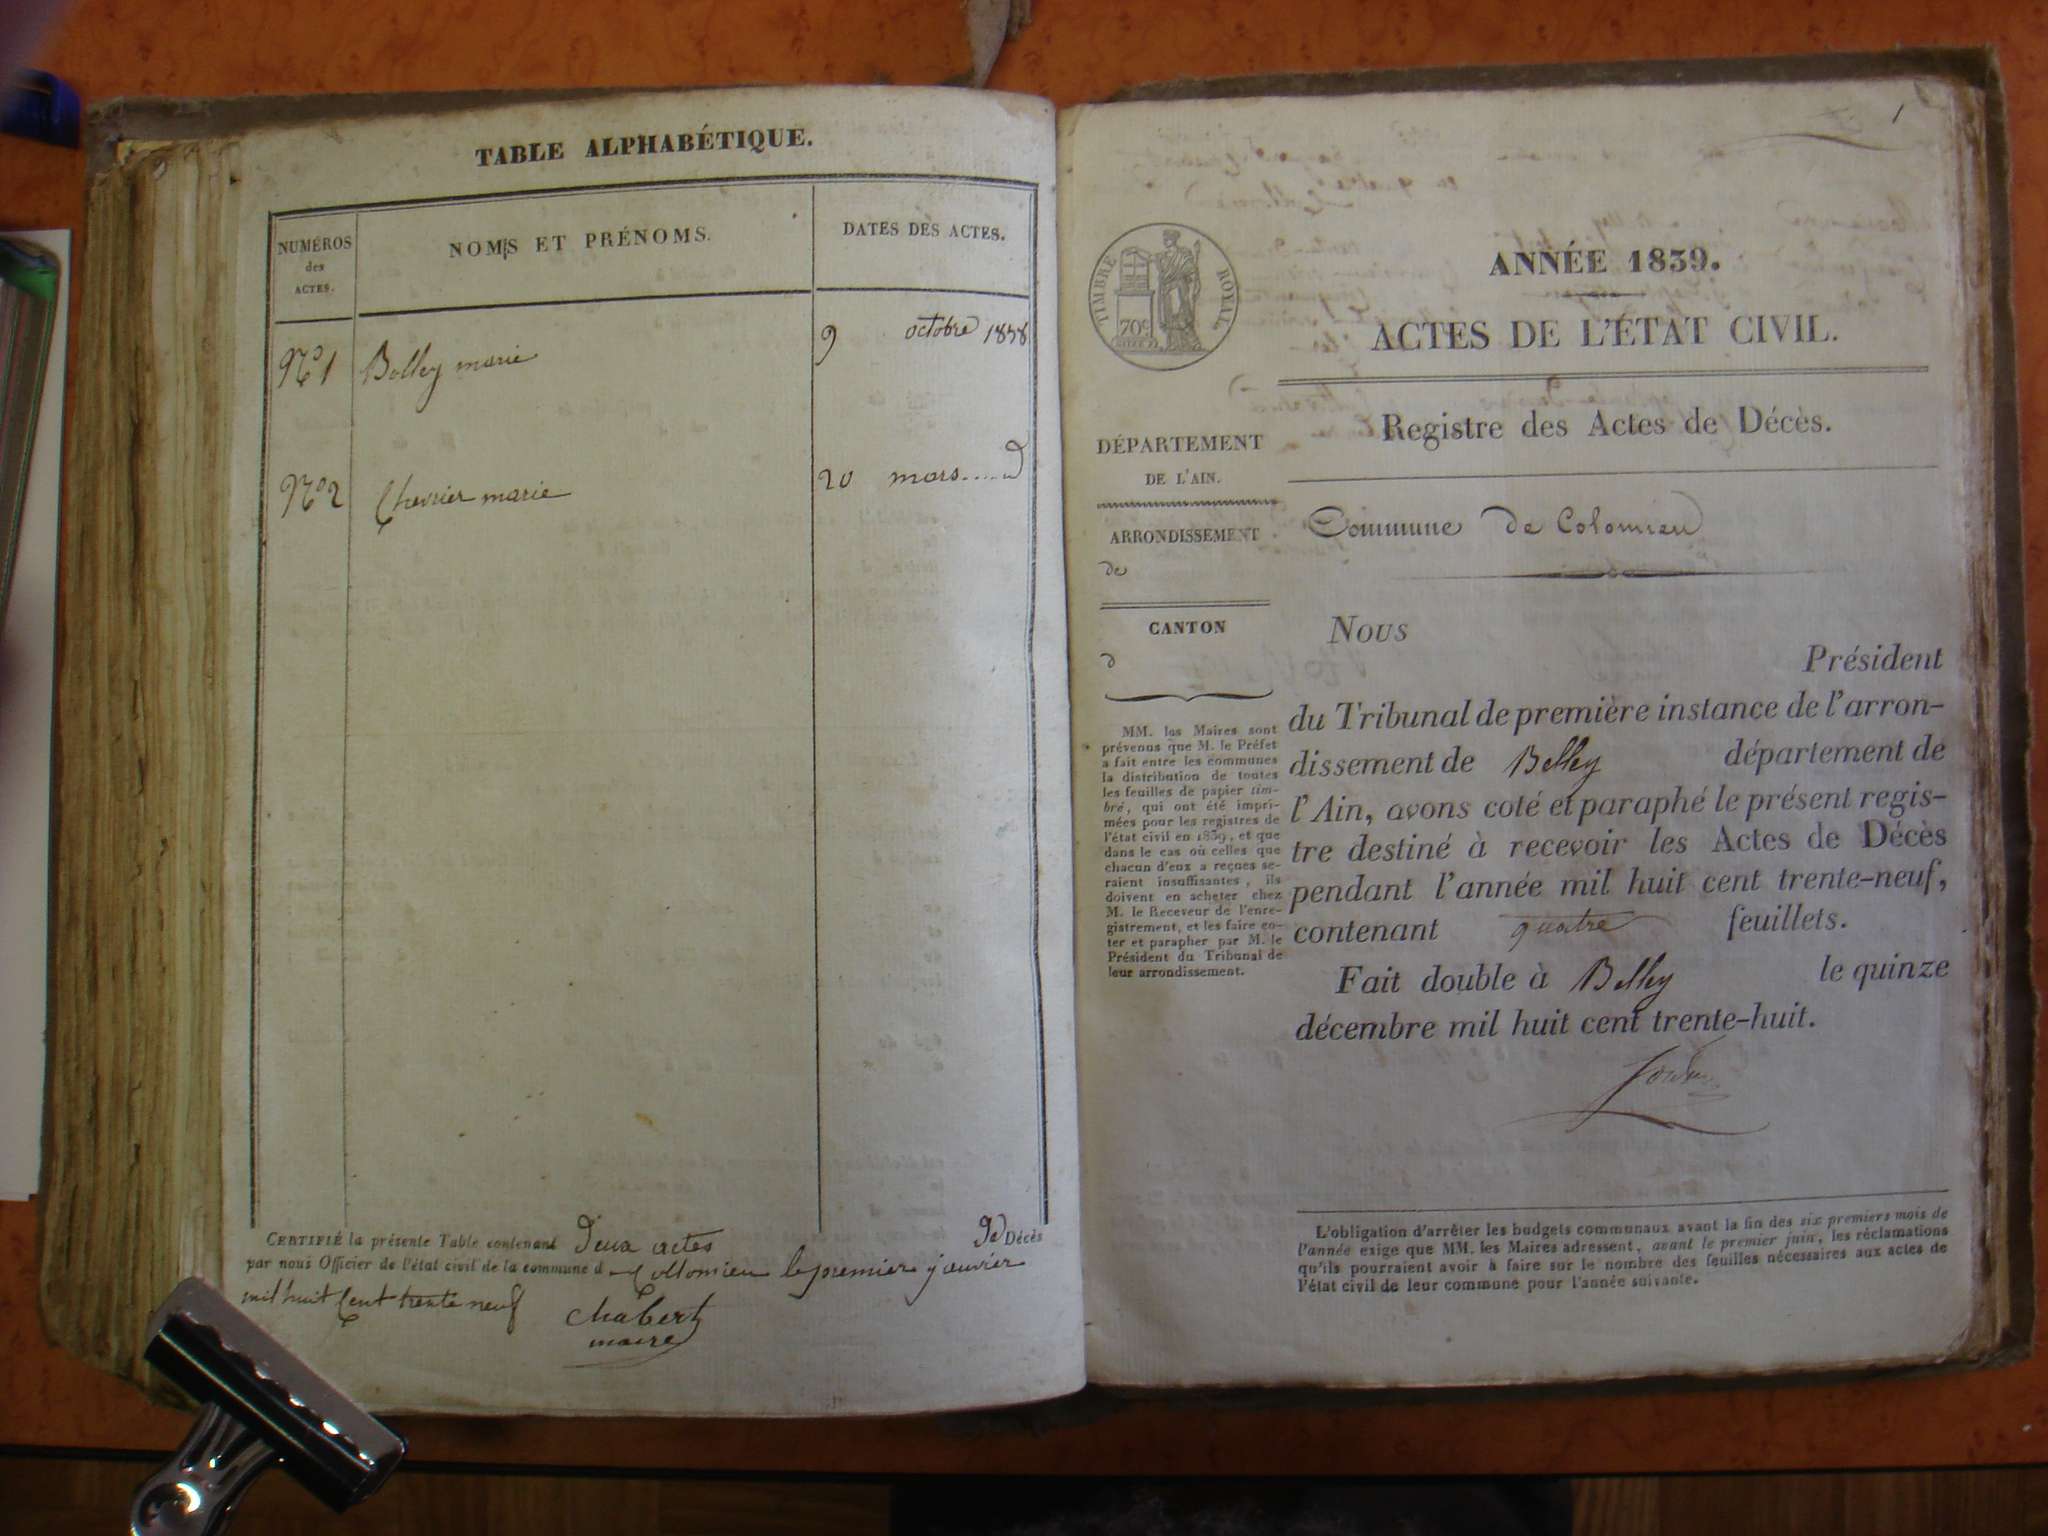 TABLE ALPHABÉTIQUE.
NUMÉROS
des
ACTES.
NOMS ET PRÉNOMS.
DATES DES ACTES.
N° 1 Bolley marie 9 octobre 1838
N° 2 Chevrier marie 20 mars ..... d
CERTIFIÉ la présente Table contenant deux actes de Décès
par nous Officier de l'état civil de la commune d Collomieu le premier janvier
mil huit Cent trente neuf
Chabert
maire
1
TIMBRE ROYAL
70c
ANNÉE 1839.
ACTES DE L'ÉTAT CIVIL.
Registre des Actes de Décès.
DÉPARTEMENT
DE L'AIN.
ARRONDISSEMENT
de
CANTON
d
MM. les Maires sont
prévenus que M. le Préfet
a fait entre les communes
la distribution de toutes
les feuilles de papier tim-
bré, qui ont été impri-
mées pour les registres de
l'état civil en 1839, et que
dans le cas où celles que
chacun d'eux a reçues se-
raient insuffisantes, ils
doivent en acheter chez
M. le Receveur de l'enre-
gistrement, et les faire co-
ter et parapher par M. le
Président du Tribunal de
leur arrondissement.
Commune de Colomieu
Nous
Président
du Tribunal de première instance de l'arron-
dissement de Belley département de
l'Ain, avons coté et paraphé le présent regis-
tre destiné à recevoir les Actes de Décès
pendant l'année mil huit cent trente-neuf,
contenant quatre feuillets.
Fait double à Belley le quinze
décembre mil huit cent trente-huit.
L'obligation d'arrêter les budgets communaux avant la fin des six premiers mois de
l'année exige que MM. les Maires adressent, avant le premier juin, les réclamations
qu'ils pourraient avoir à faire sur le nombre des feuilles nécessaires aux actes de
l'état civil de leur commune pour l'année suivante.